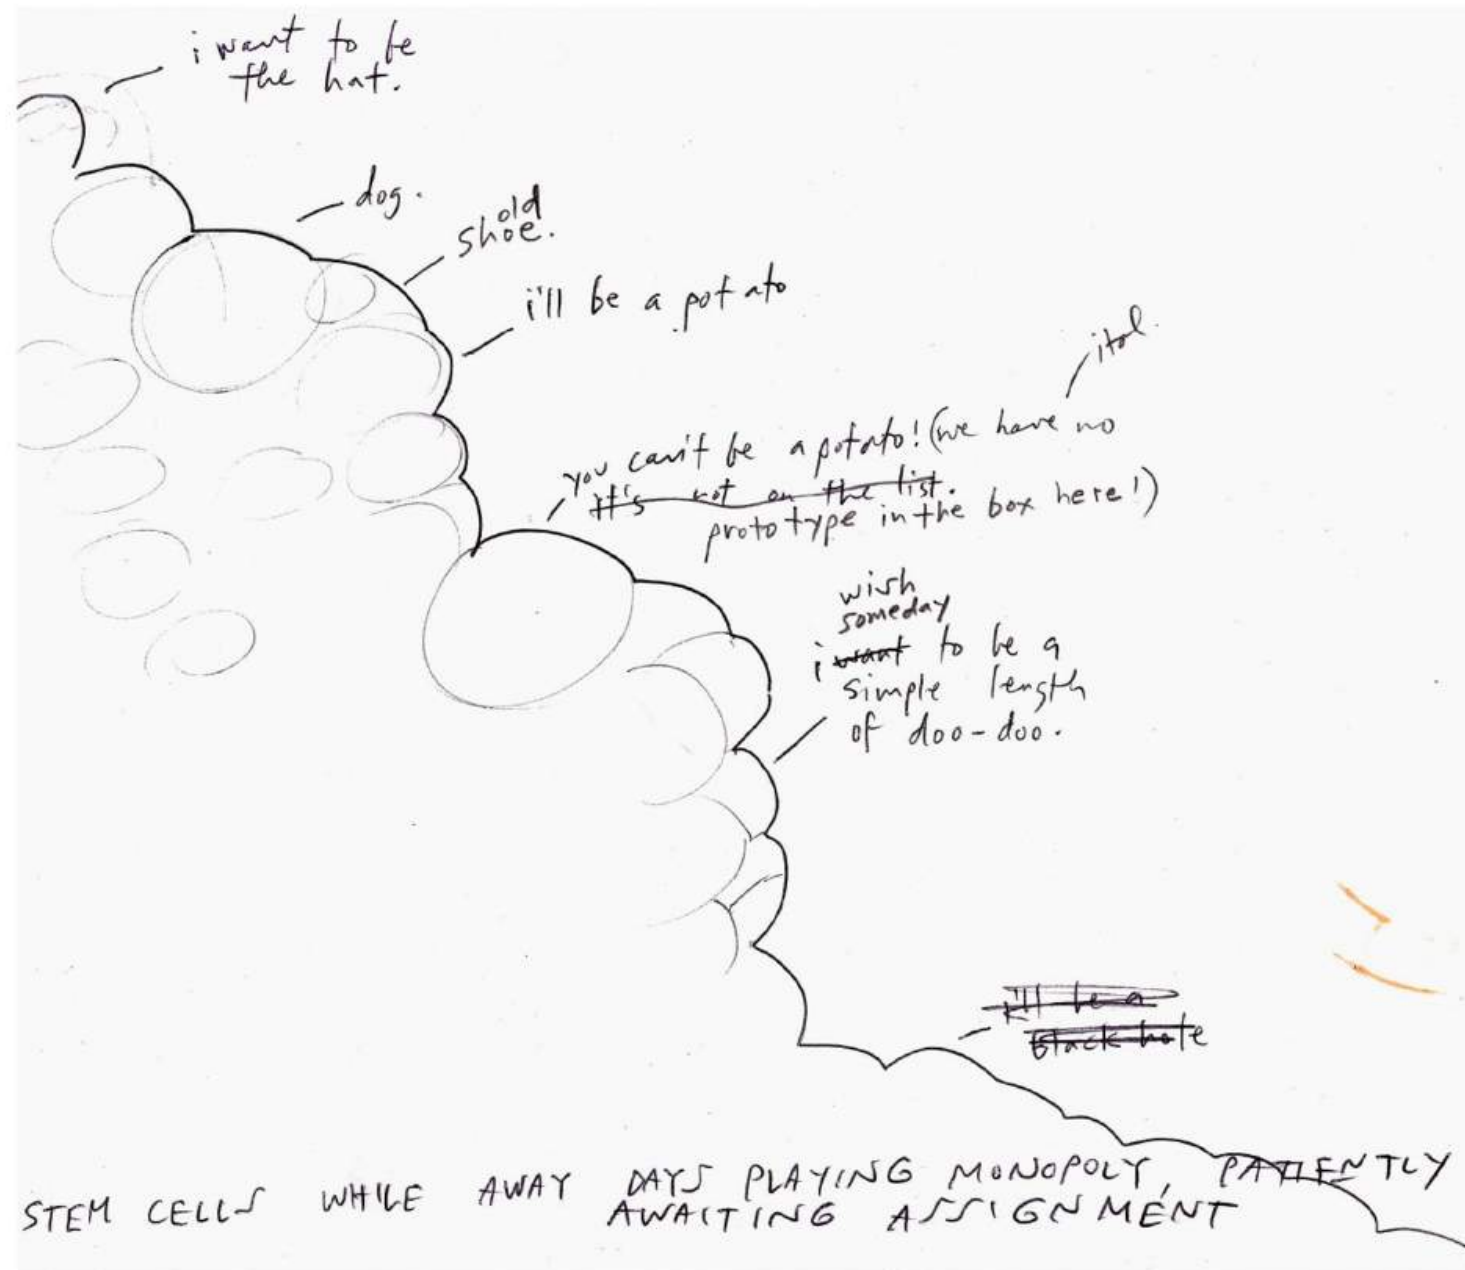 i want to be
the hat.
dog.
old
shoe.
i'll be a potato
ital.
you can't be a potato! (we have no
it's not on the list.
prototype in the box here!)
wish
someday
i want to be a
simple length
of doo-doo.
i'll be a
black hole
STEM CELLS WHILE AWAY DAYS PLAYING MONOPOLY, PATIENTLY
AWAITING ASSIGNMENT